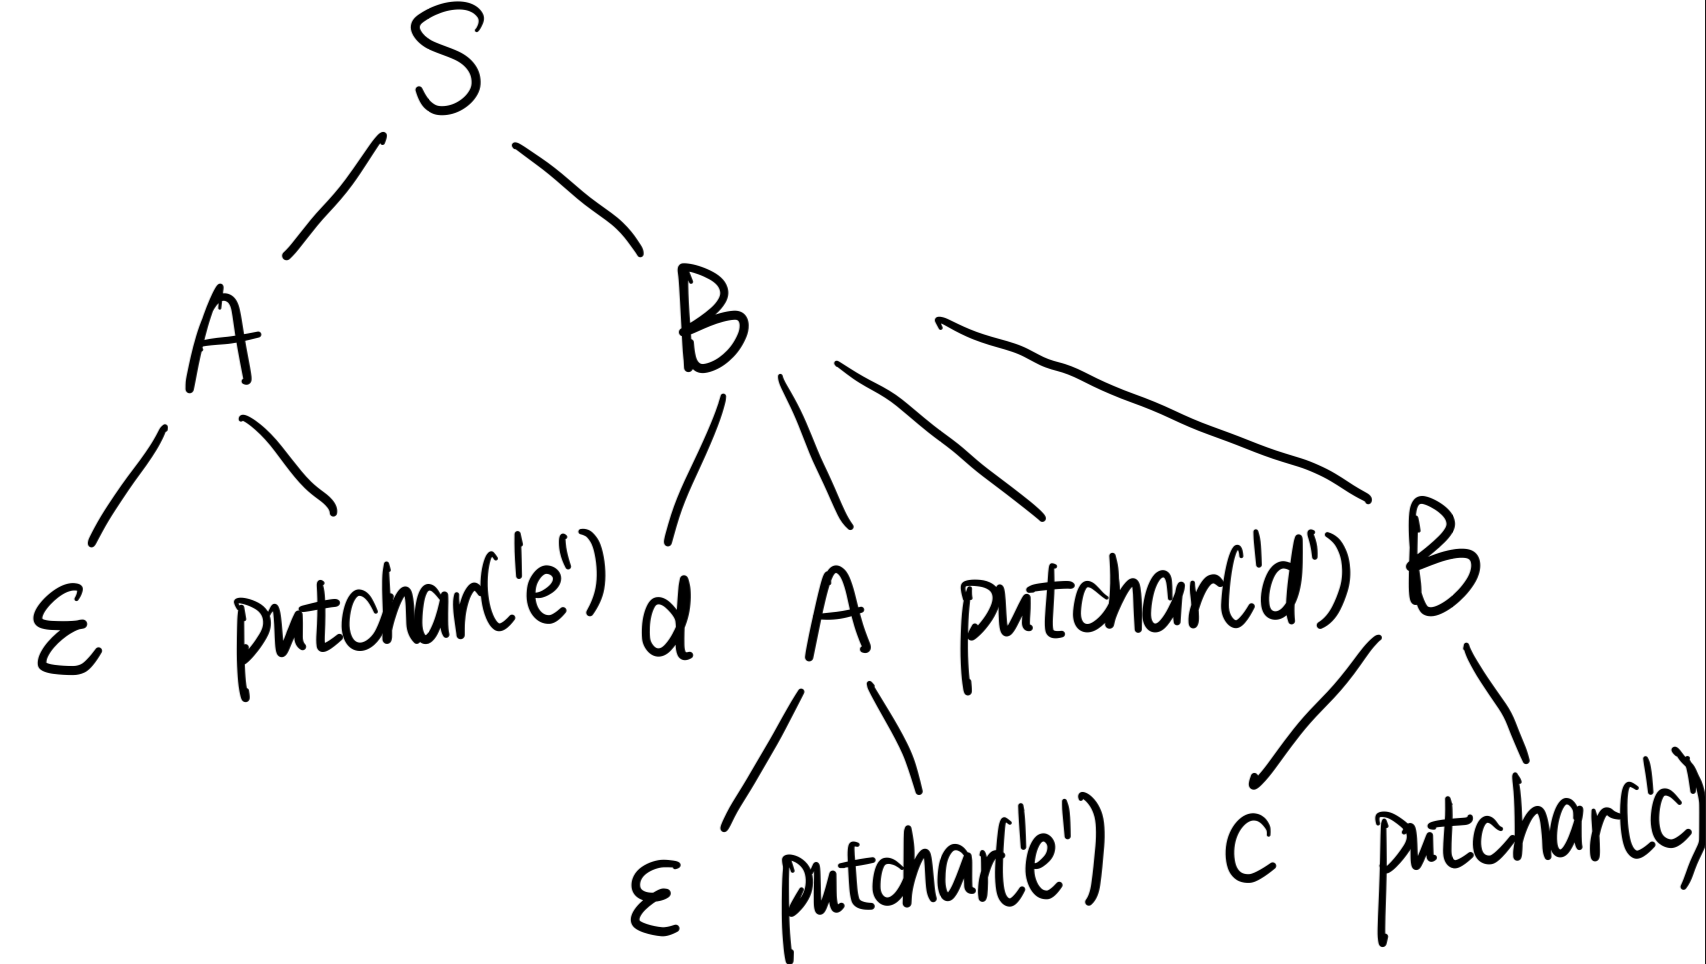 S
A B
ε putchar('e') d A putchar('d') B
ε putchar('e') c putchar('c')